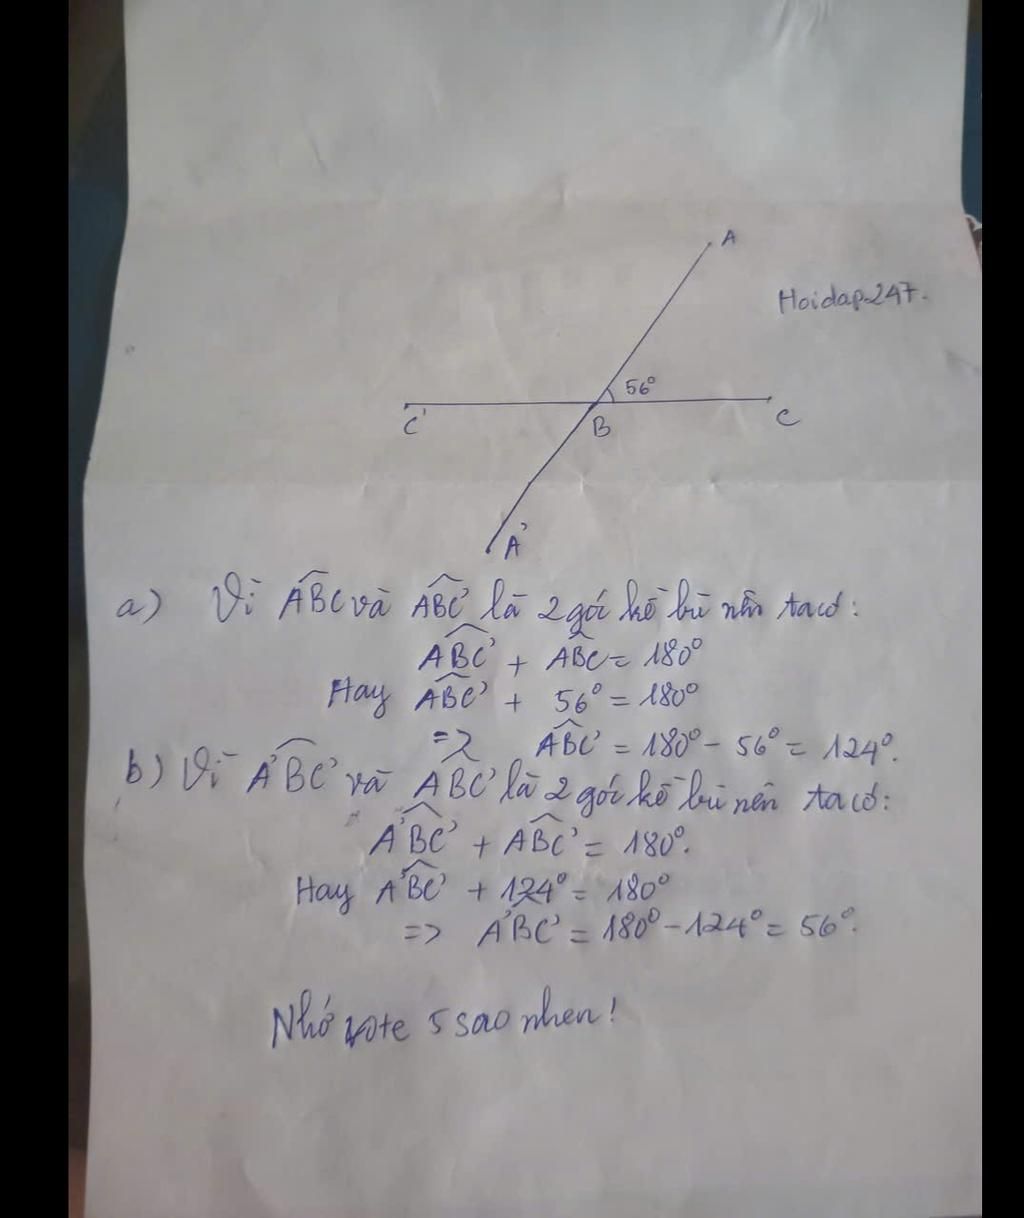 A
Hoidap247.
56°
C'
B
C
A'
a) Vì ABC và ABC' là 2 góc kề bù nên ta có:
ABC' + ABC = 180°
Hay ABC' + 56° = 180°
=> ABC' = 180° - 56° = 124°.
b) Vì A'BC' và ABC' là 2 góc kề bù nên ta có:
A'BC' + ABC' = 180°.
Hay A'BC' + 124° = 180°
=> A'BC' = 180° - 124° = 56°.
Nhớ vote 5 sao nhen!